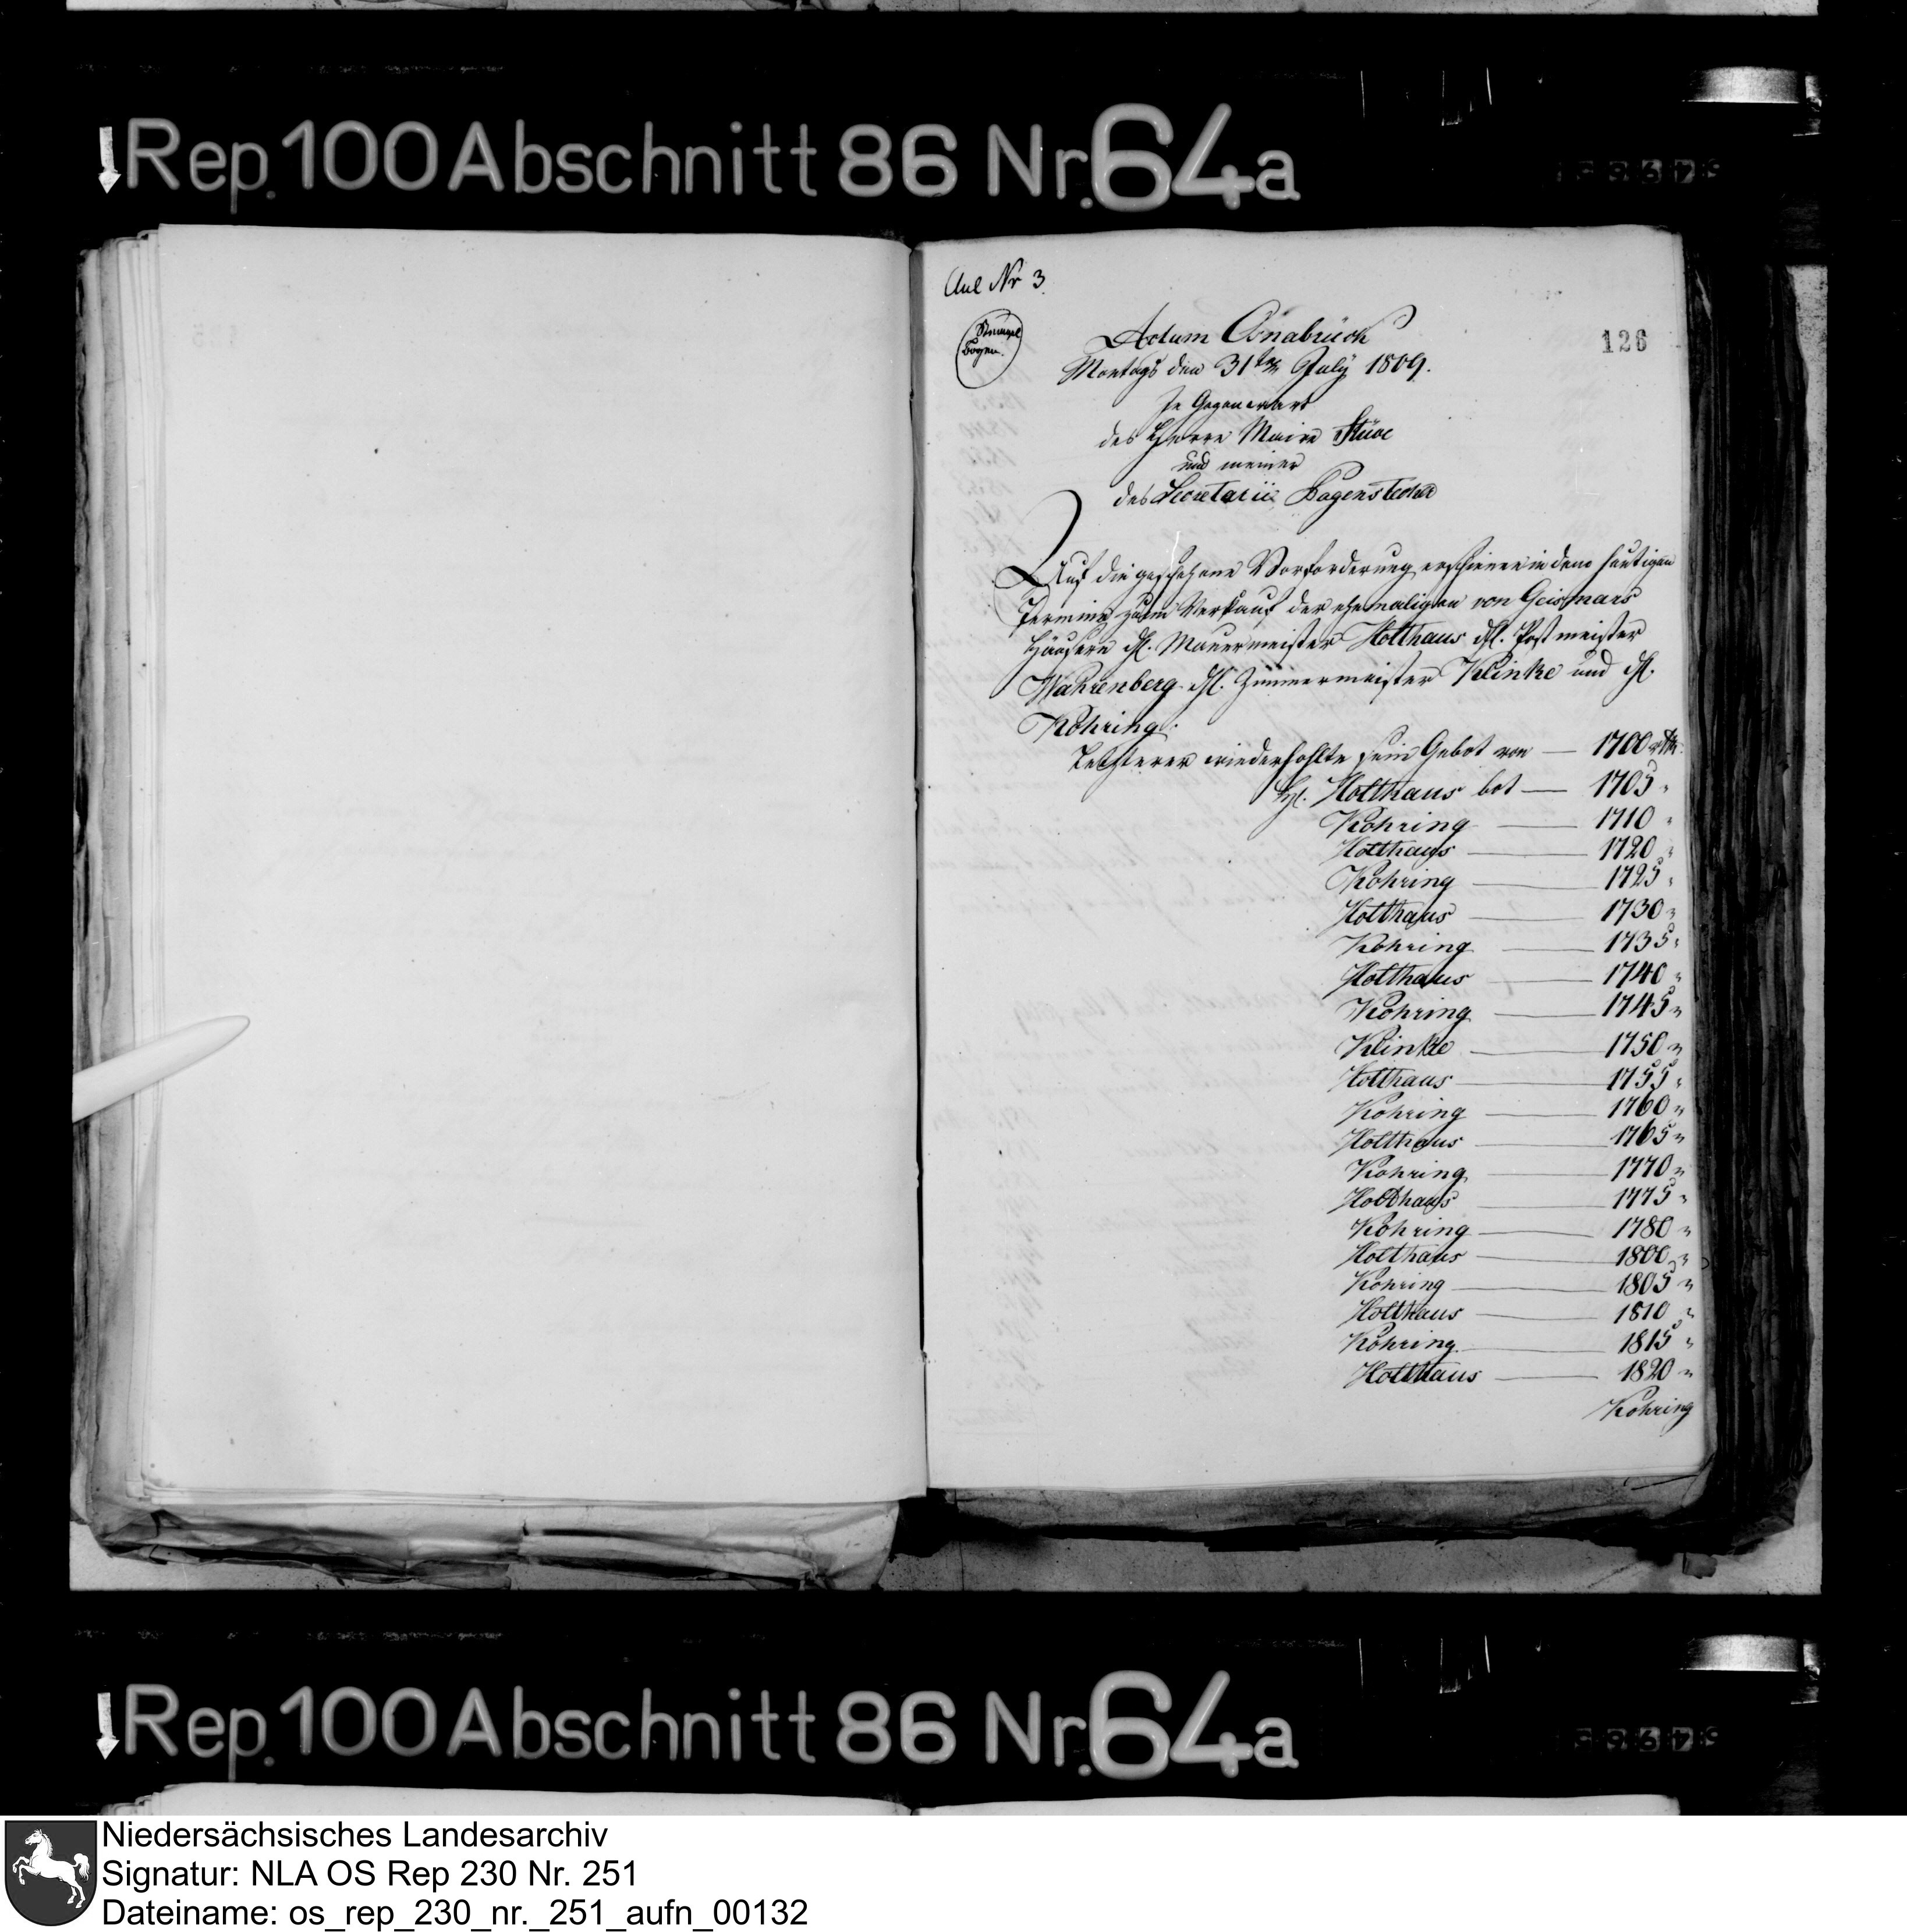 Rep. 100 Abschnitt 86 Nr. 64a
Anl Nr 3.
Stempel
Bogen.
126
Actum Osnabrück
Montags den 31ten July 1809.
In Gegenwart
des Herrn Maire Stüve
und meiner
des Secretarii Pagenstecher
Auf die geschehene Vorforderung erschienen in dem heutigen
Termine zum Verkauf der ehemaligen von Geismars
Häusern H. Mauermeister Holthaus H. Postmeister
Wahrenberg H. Zimmermeister Klinke und H.
Köhring.
Letzterer wiederhohlte sein Gebot von — 1700 rthr.
H. Holthaus bot — 1705 "
Köhring — 1710 "
Holthaus — 1720 "
Köhring — 1725 "
Holthaus — 1730 "
Köhring — 1735 "
Holthaus — 1740 "
Köhring — 1745 "
Klinke — 1750 "
Holthaus — 1755 "
Köhring — 1760 "
Holthaus — 1765 "
Köhring — 1770 "
Holthaus — 1775 "
Köhring — 1780 "
Holthaus — 1800 "
Köhring — 1805 "
Holthaus — 1810 "
Köhring — 1815 "
Holthaus — 1820 "
Köhring
Rep. 100 Abschnitt 86 Nr. 64a
Niedersächsisches Landesarchiv
Signatur: NLA OS Rep 230 Nr. 251
Dateiname: os_rep_230_nr._251_aufn_00132